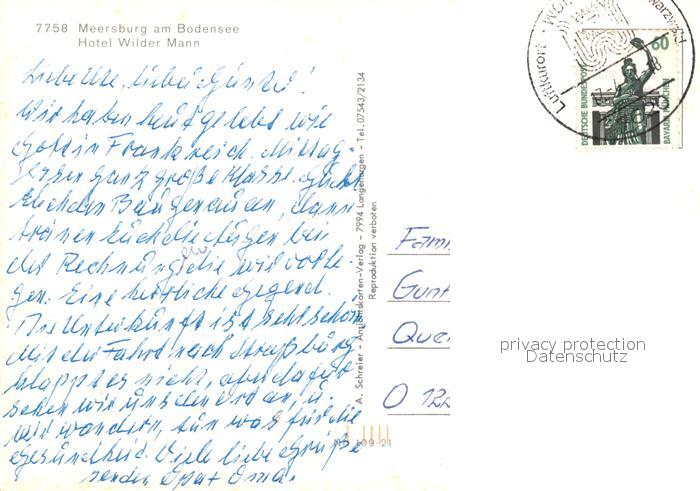 7758 Meersburg am Bodensee
Hotel Wilder Mann
Liebe Ute, lieber Günter!
Wir haben heut gelebt wie
Gott in Frankreich. Mittag-
essen ganz große Klasse.
Euch Baugenauden, dann
tränen Euch die Augen bei
der Rechnung, die wir vorle-
gen. Eine herrliche Gegend.
Die Unterkunft ist sehr schön
Mit der Fahrt nach Straßburg
klappt es nicht, aber dafür
sehen wir uns den Ort an, u.
wir wandern, tun was für die
Gesundheit. Viele liebe Grüße
senden Opa + Oma.
A. Schreier - Ansichtskarten-Verlag - 7994 Langenargen - Tel. 07543/2134
Reproduktion verboten
Luftkurort
DEUTSCHE BUNDESPOST
60
BAVARIA MÜNCHEN
Fam
Gunt
Que
O 122
privacy protection
Datenschutz
109-21